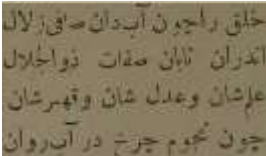 خلق را چون آب دان صافی زلال
اندران تابان صفات ذوالجلال
علمشان وعدل شان وقهرشان
چون نجوم چرخ در آب روان